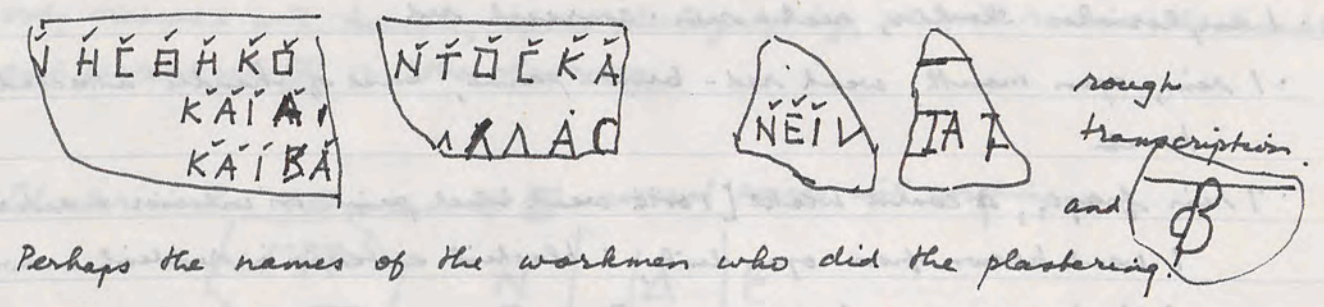 ΙΗCΘΗΚΟ
ΚΑΙΑΙ
ΚΑΙΒΑ
ΝΤΟCΚΑ
ΛΧΛΑC
ΝΕΙV
ΙΑΙ
rough
transcription.
and β
Perhaps the names of the workmen who did the plastering.